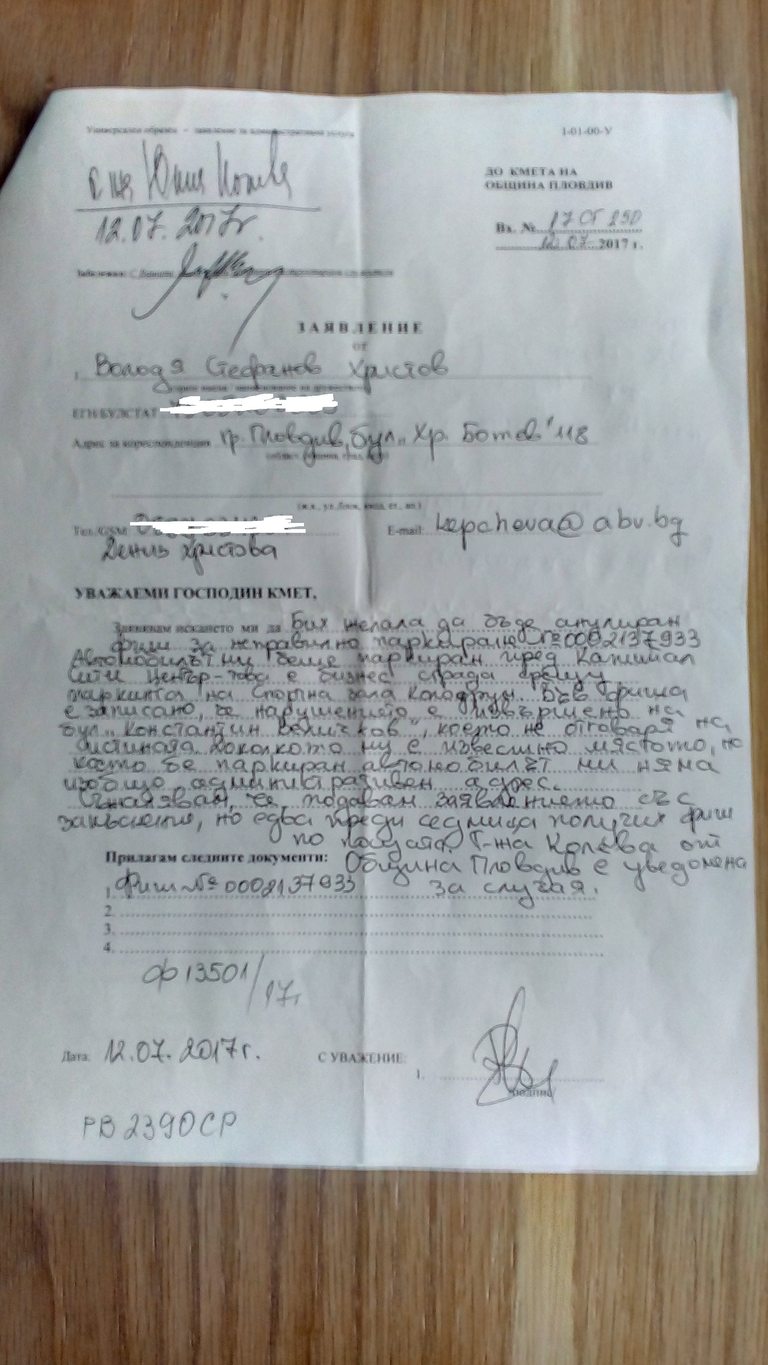 Универсален образец – заявление за административна услуга
1-01-00-У
12.07.2017г.
ДО КМЕТА НА
ОБЩИНА ПЛОВДИВ
Вх. № 17 ОГ 290
12.07. 2017 г.
ЗАЯВЛЕНИЕ
от
1. Володя Стефанов Христов
ЕГН/БУЛСТАТ
Адрес за кореспонденция гр. Пловдив, бул. „Хр. Ботев" 118
(ж.к., ул. блок, вход, ет., ап.)
Тел./GSM:
E-mail: kepcheva@abv.bg
Христова
УВАЖАЕМИ ГОСПОДИН КМЕТ,
Заявявам искането ми да Бих желала да бъде анулиран
фиш за неправилно паркиране №0002137933
Автомобилът ни беше паркиран пред Капитал
Сити Център-това е бизнес сграда срещу
паркинга на Спортна зала Колодрум. Във фиша
е записано, че нарушението е извършено на
бул. „Константин Величков", което не отговаря на
истината. Доколкото ни е известно мястото, на
което бе паркиран автомобилът ми няма
изобщо административен адрес.
че подавам заявлението със
закъснение, но едва преди седмица получих фиш
по пощата. Г-жа Колева от
Прилагам следните документи: Община Пловдив е уведомена
1. Фиш №0002137933 за случая.
2.
3.
4.
ф 13501/17г
Дата: 12.07.2017г.
С УВАЖЕНИЕ:
1.
/подпис/
РВ 2390СР